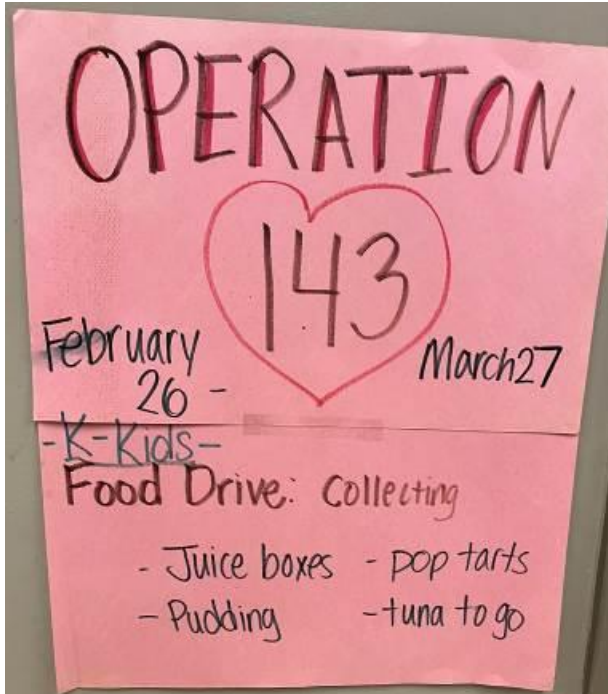 OPERATION
143
February
26 - March 27
- K-Kids -
Food Drive: Collecting
- Juice boxes - pop tarts
- Pudding - tuna to go